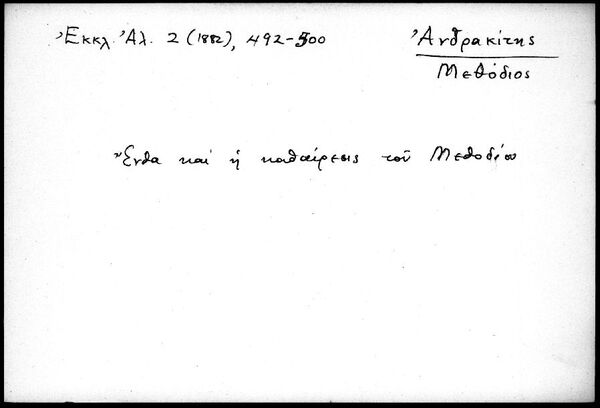 Ἐκκλ. Ἀλ. 2 (1882), 492-500
Ἀνθρακίτης
Μεθόδιος
Ἔνθα καὶ ἡ καθαίρεσις τοῦ Μεθοδίου